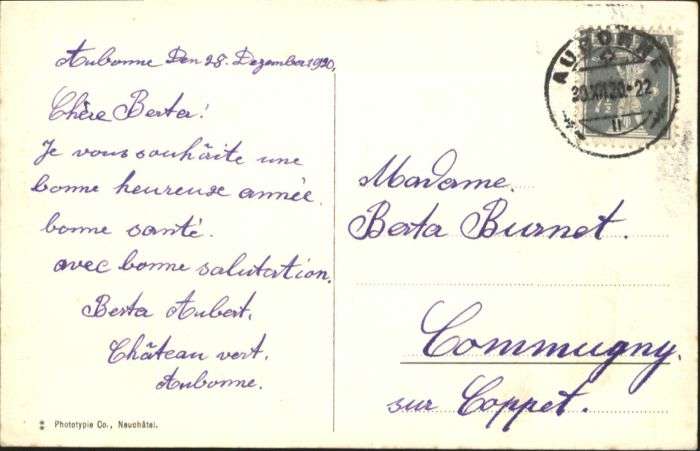 Aubonne Den 28. Dezember 1920,
Chère Berta!
Je vous souhâite une
bonne heureuse année.
bonne santé.
avec bonne salutation.
Berta Aubert,
Château vert,
Aubonne.
Phototypie Co., Neuchâtel.
AUBONNE
30.XII.20-22
7½
Madame.
Berta Burnet.
Commugny.
sur Coppet.